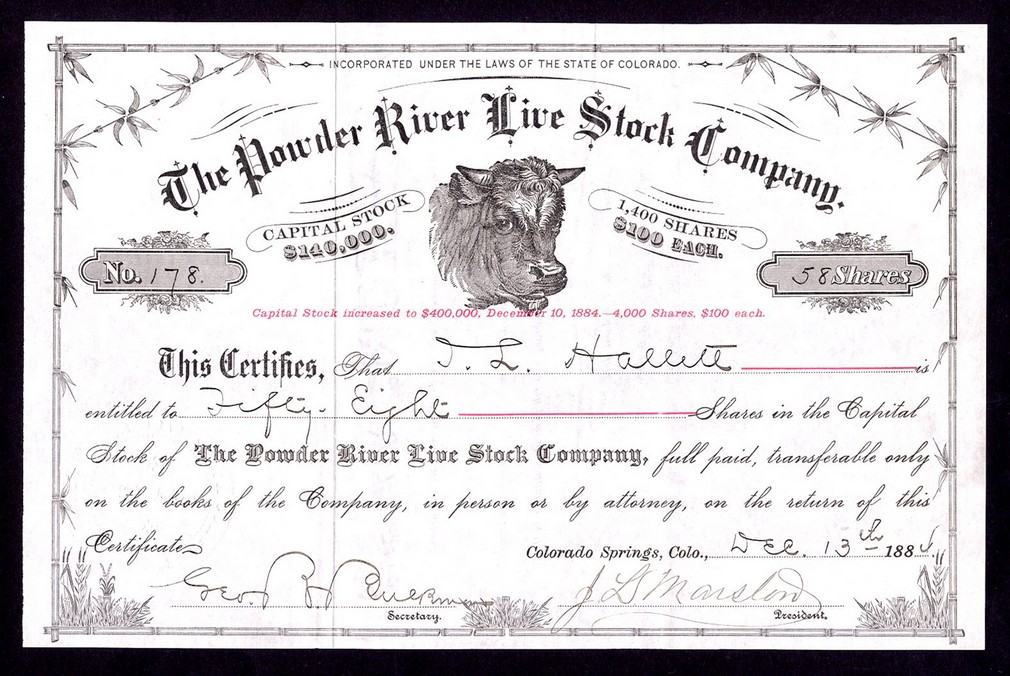 INCORPORATED UNDER THE LAWS OF THE STATE OF COLORADO.
The Powder River Live Stock Company.
CAPITAL STOCK
$140,000.
1,400 SHARES
$100 EACH.
No. 178.
58 Shares
Capital Stock increased to $400,000, December 10, 1884.—4,000 Shares, $100 each.
This Certifies, That T. L. Hallett is
entitled to Fifty-Eight Shares in the Capital
Stock of The Powder River Live Stock Company, full paid, transferable only
on the books of the Company, in person or by attorney, on the return of this
Certificate
Colorado Springs, Colo., Dec. 13th 1884.
Geo. R. Buckman
Secretary.
J L Marston
President.